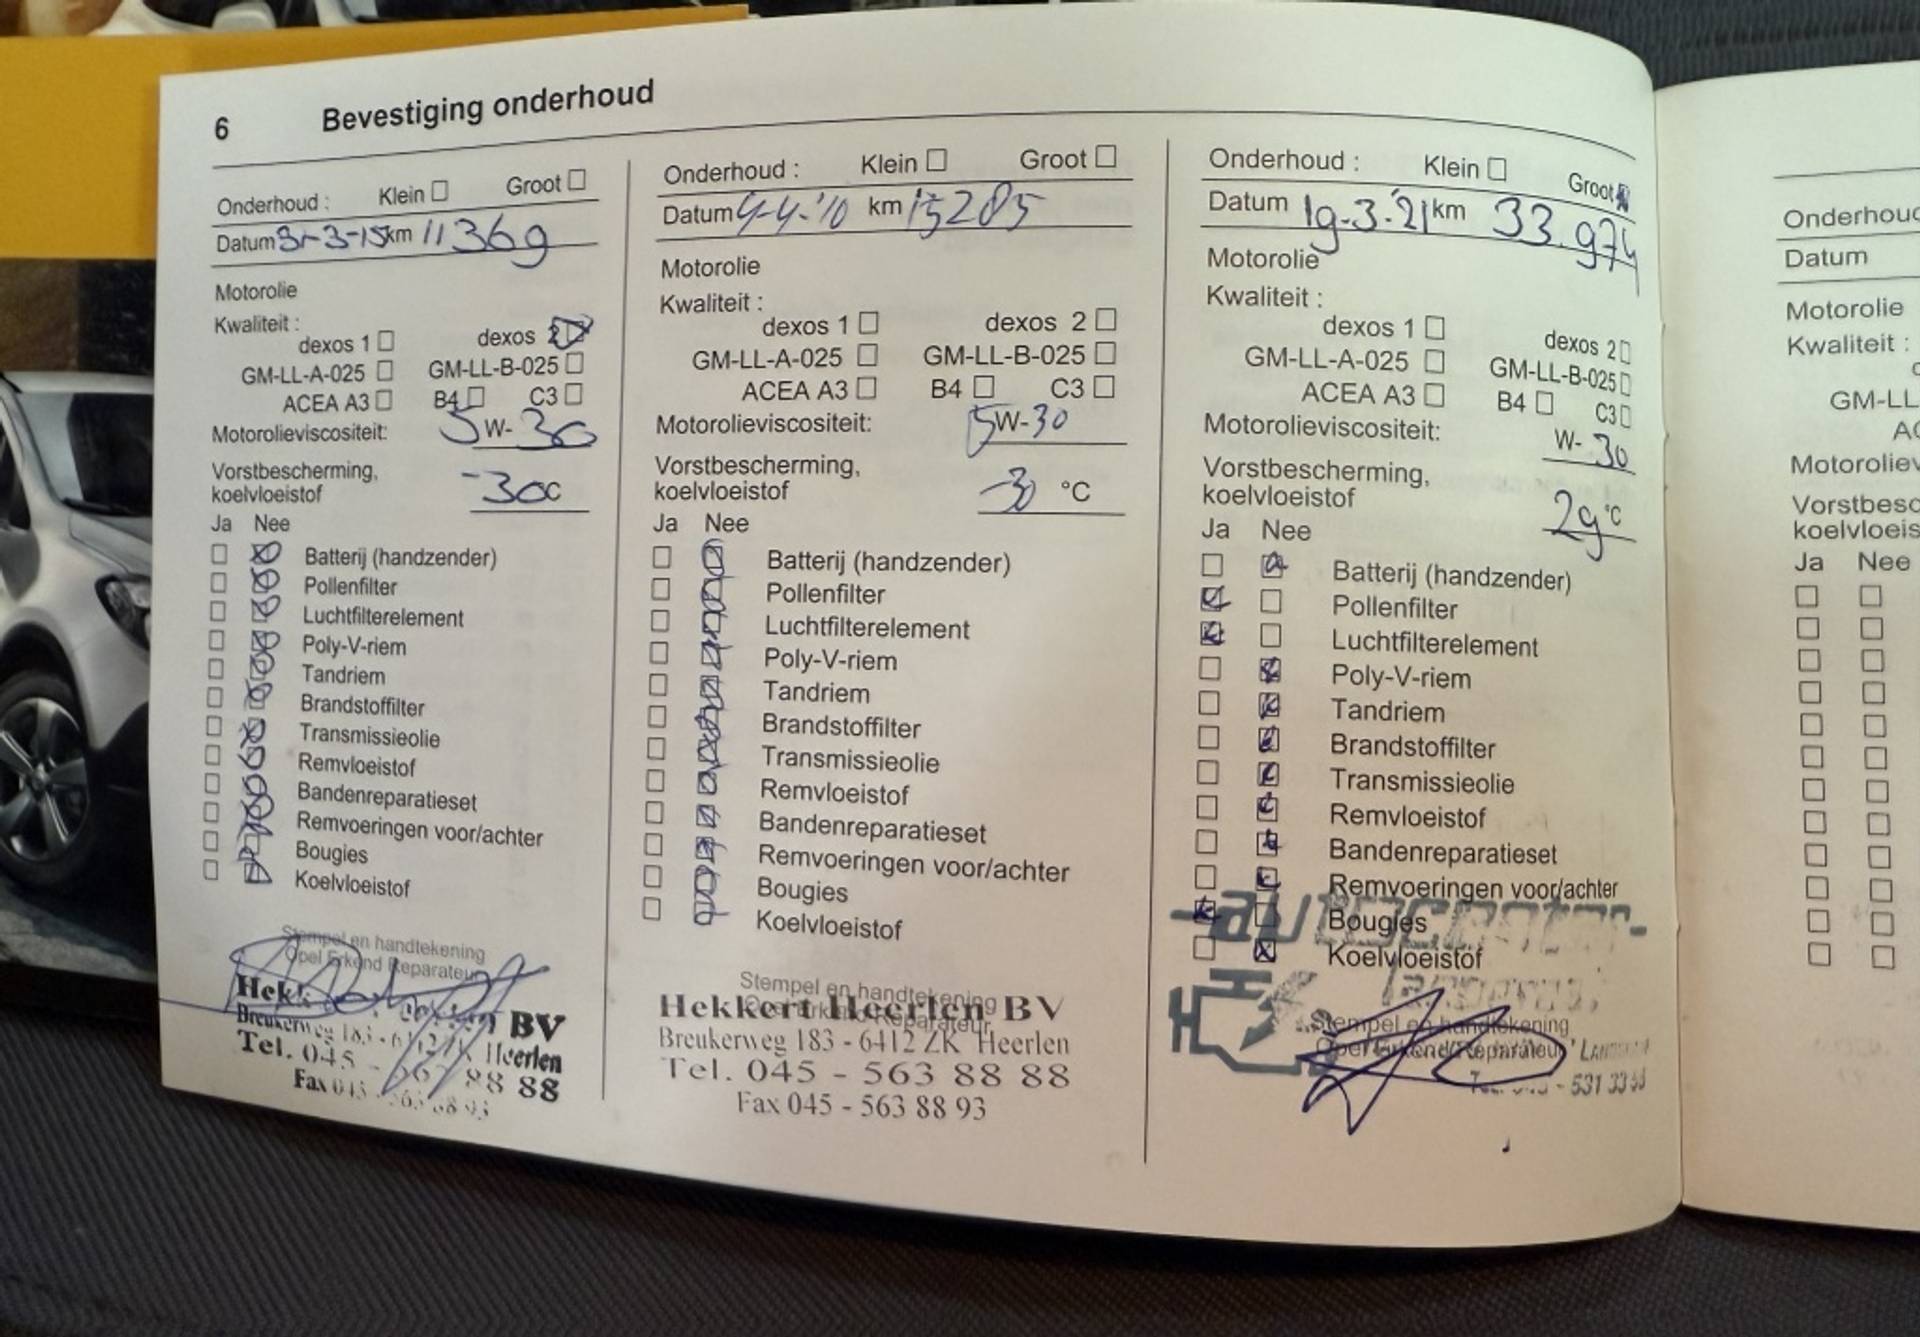 6 Bevestiging onderhoud
Onderhoud : Klein Groot
Datum 31-3-15 km 11369
Motorolie
Kwaliteit :
dexos 1 dexos 2
GM-LL-A-025 GM-LL-B-025
ACEA A3 B4 C3
Motorolieviscositeit: 5W-30
Vorstbescherming,
koelvloeistof -30 C
Ja Nee
Batterij (handzender)
Pollenfilter
Luchtfilterelement
Poly-V-riem
Tandriem
Brandstoffilter
Transmissieolie
Remvloeistof
Bandenreparatieset
Remvoeringen voor/achter
Bougies
Koelvloeistof
Stempel en handtekening
Opel Erkend Reparateur
BV
Breukerweg 183 - Heerlen
Tel. 045 - 88 88
Fax 045
Onderhoud : Klein Groot
Datum km 15285
Motorolie
Kwaliteit :
dexos 1 dexos 2
GM-LL-A-025 GM-LL-B-025
ACEA A3 B4 C3
Motorolieviscositeit: 5W-30
Vorstbescherming,
koelvloeistof -30 °C
Ja Nee
Batterij (handzender)
Pollenfilter
Luchtfilterelement
Poly-V-riem
Tandriem
Brandstoffilter
Transmissieolie
Remvloeistof
Bandenreparatieset
Remvoeringen voor/achter
Bougies
Koelvloeistof
Stempel en handtekening
Reparateur
Hekkert Heerlen BV
Breukerweg 183 - 6412 ZK Heerlen
Tel. 045 - 563 88 88
Fax 045 - 563 88 93
Onderhoud : Klein Groot
Datum 19-3-'21 km 33.974
Motorolie
Kwaliteit :
dexos 1 dexos 2
GM-LL-A-025 GM-LL-B-025
ACEA A3 B4 C3
Motorolieviscositeit: W-30
Vorstbescherming,
koelvloeistof 29 °C
Ja Nee
Batterij (handzender)
Pollenfilter
Luchtfilterelement
Poly-V-riem
Tandriem
Brandstoffilter
Transmissieolie
Remvloeistof
Bandenreparatieset
Remvoeringen voor/achter
Bougies
Koelvloeistof
autocenter
Stempel en handtekening
Opel Erkend Reparateur
- 531 33
Onderhoud
Datum
Motorolie
Kwaliteit :
GM-LL
Motoroliev
Vorstbesc
koelvloeis
Ja Nee